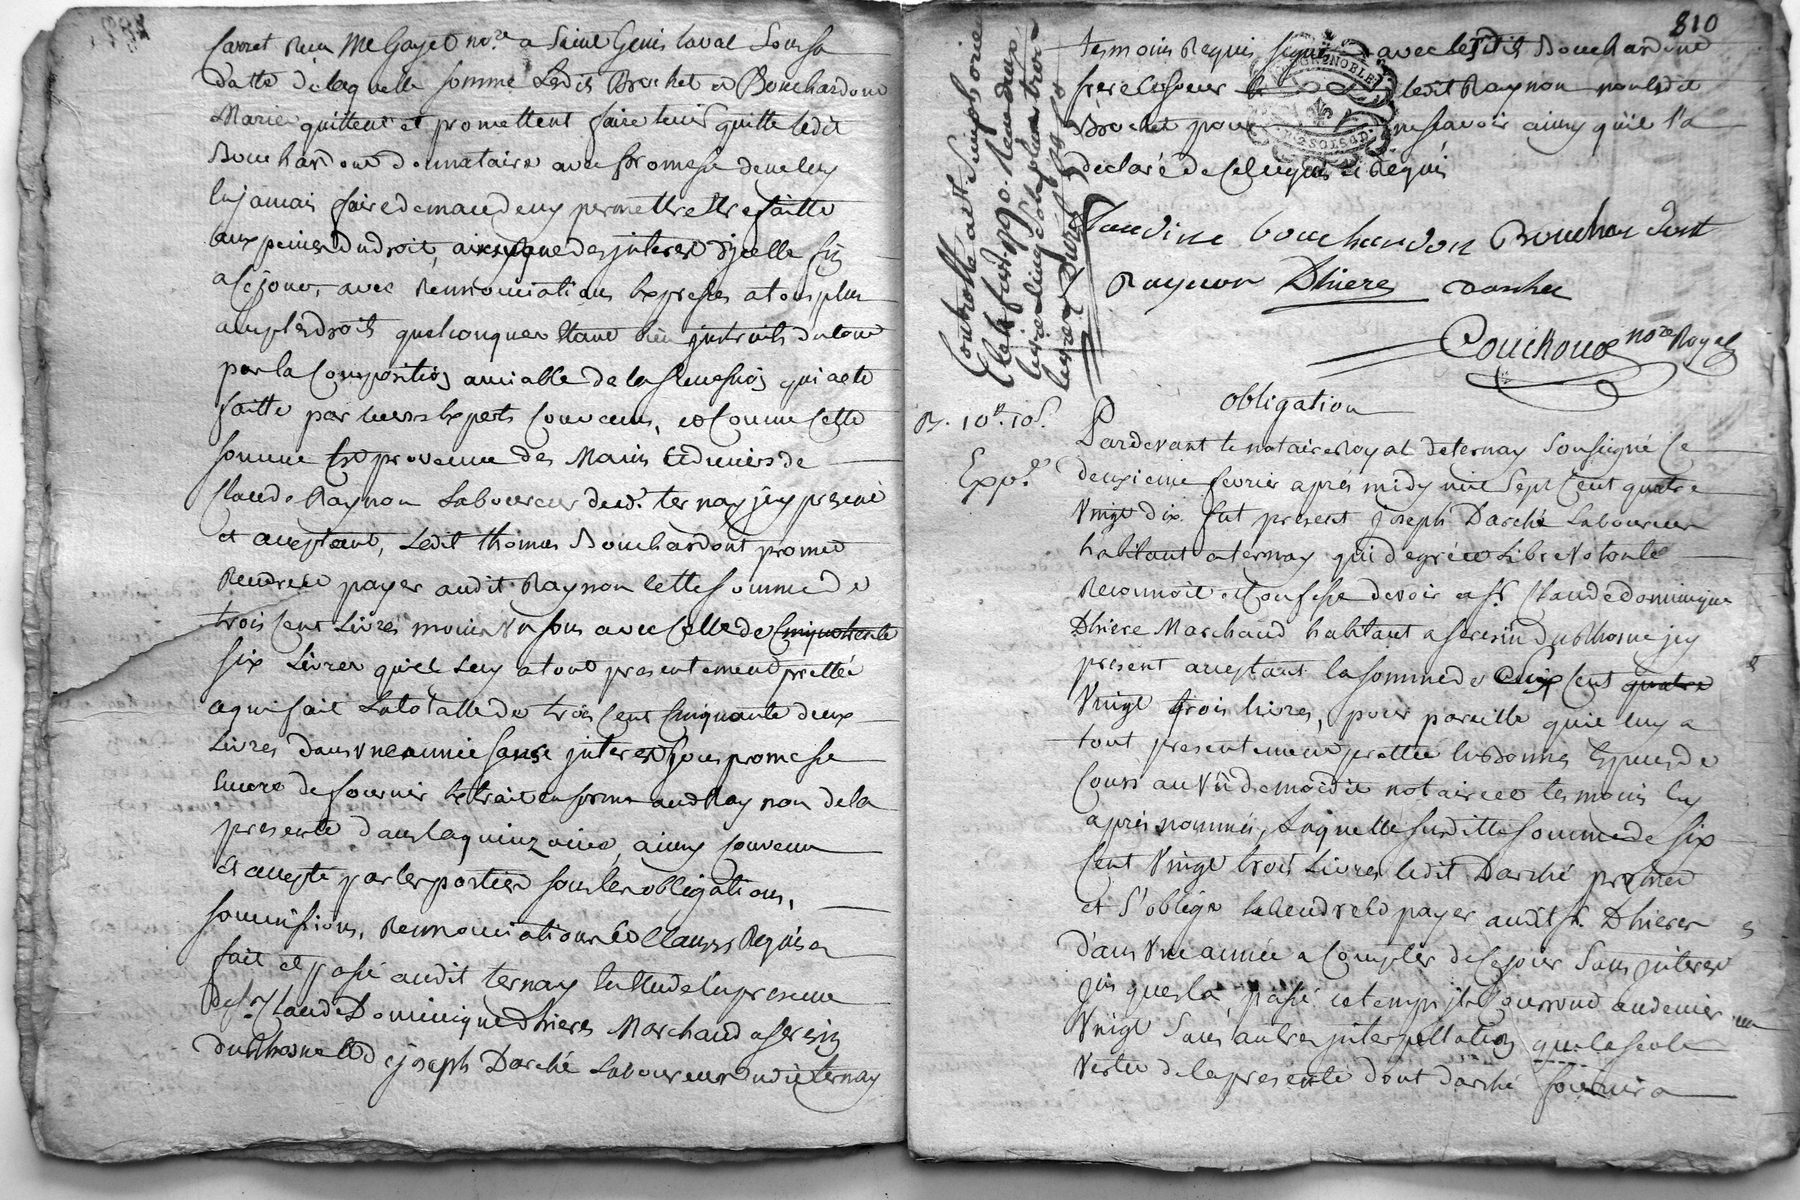 Carret Reçu Me Gayet nore a Saint Genis laval Sous sa
datte de laquelle somme Ledit Brochet et Bouchardone
Mariés quittent et promettent faire tenir quitte ledit
Bouchardone donnataire avec promesse de ne luy
En jamais faire demande ny permettre Etre faitte
aux peines du droit, ainsy que des interet d'icelle
a ce jour, avec Rennonciations Expresses a tous plus
amples droits quelconques Etant bien instruits du tout
par la Composition amiable de la succession qui a eté
faitte par leurs Experts Convenus, et Comme Cette
somme Est provenue des Mains et deniers de
Claude Raynon Laboureur dud. ternay icy present
et aceptant, Ledit thomas Bouchardont promet
Rendre et payer audit Raynon Cette somme de
trois Cent Livres moins Un sous avec Celle de Cinquante
six Livres qu'il Luy a tout presentement prettée
ce qui fait La totalle de trois Cent Cinquante deux
Livres dans une année sans interet sous promesse
Encore de fournir Extrait en forme aud Raynon de la
presente dans la quinzaine, ainsy Convenu
et accepté par les parties sous les obligations,
soumissions, Rennonciations et Clauses Requises
fait et passé audit ternay En Etude En presence
de sr. Claude Dominique Dhieres Marchand a Serezin
du Rhosne et de joseph Darché Laboureur dudit ternay
810
temoins Requis signé avec lesdits Bouchardone
frere et soeur ledit Raynon non ledit
Brochet pour ne scavoir ainsy qu'il l'a
declaré de Ce Enquis et Requis
Claudine bouchardon Bouchardont
Raynon Dhieres Darché
Couchoud nore Royal
Controllé a St Simphorien
le 14 fevr. 1790. Reçu deux
livre cinq sols
GRENOBLE
obligation
R. 10tt. 10s.
Exp.é
Pardevant le notaire Royal de ternay Soussigné Ce
deuxieme fevrier après midy mil Sept Cent quatre
Vingt dix fut present joseph Darché Laboureur
habitant a ternay qui de gré et Libre Volonté
Reconnoit et Confesse devoir a sr. Claude dominique
Dhiere Marchand habitant a serezin du Rhosne icy
present aceptant la somme de six Cent quatre
Vingt trois livres, pour pareille qu'il luy a
tout presentement prettée En Bonnes Especes de
Cours au Vû de moidit notaire et temoins En
après nommés, Laquelle susditte somme de six
Cent Vingt trois Livres ledit Darché promet
et S'oblige la Rendre Et payer audit sr. Dhieres
dans Une année a Compter de Ce jour Sans interet
jusques là passé ce temps ils Courront au denier
Vingt Sans autre interpellation que la seule
Vertu de la presente dont darché fournira